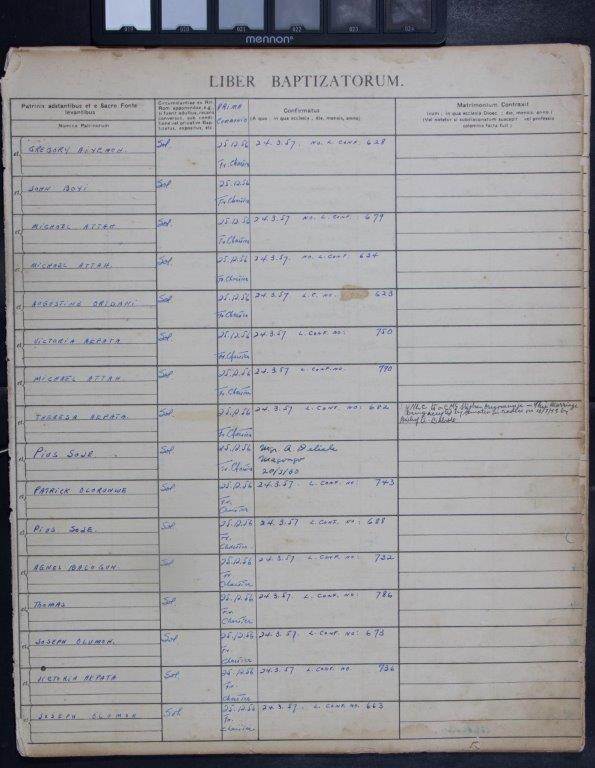 020 021 022 023 024
mennon
LIBER BAPTIZATORUM.
Patrinis adstantibus et e Sacro Fonte levantibus
Nomina Patrinorum
PRIMA COMMUNIO
Confirmatus
(A quo; in qua ecclesia; die, mensis, anno)
Matrimonium Contraxit
(cum; in qua ecclesia Dioec.; die, mensis, anno.)
(Vel notetur si subdiaconatum suscepit vel professio solemnis facta fuit)
et GREGORY Sol. 25.12.56 24.3.57. NO. L. CONF. 628
Fr. Chartier
et JOHN BOYI Sol. 25.12.56
Fr. Chartier
et MICHAEL ATTAH Sol. 25.12.56 24.3.57 NO. L. CONF. 679
Fr. Chartier
et MICHAEL ATTAH. Sol. 25.12.56 24.3.57. NO. L. CONF. 634
Fr. Chartier
et AUGUSTINE Sol. 25.12.56 24.3.57 L.C. NO. 623
Fr. Chartier
et VICTORIA AKPATA Sol. 25.12.56 24.3.57 L. CONF. NO: 750
Fr. Chartier
et MICHAEL ATTAH Sol. 25.12.56 24.3.57 L. CONF. NO. 790
Fr. Chartier
et THERESA AKPATA. Sol. 25.12.56 24.3.57 L. CONF. NO: 682
Fr. Chartier
et PIUS SOJE Sol. 25.12.56 Mgr. A. Delisle
Fr. Chartier Magongo
20/3/60
et PATRICK OLORUNWE Sol. 25.12.56 24.3.57 L. CONF. NO: 743
Fr. Chartier
et PIUS SOJE. Sol. 25.12.56 24.3.57 L. CONF. NO: 688
Fr. Chartier
et AGNES BALOGUN Sol. 25.12.56 24.3.57 L. CONF. NO: 732
Fr. Chartier
et THOMAS Sol 25.12.56 24.3.57 L. CONF. NO: 786
Fr. Chartier
et JOSEPH OLUMOH. Sol 25.12.56 24.3.57 L. CONF. NO: 673
Fr. Chartier
et VICTORIA AKPATA Sol. 25.12.56 24.3.57 L. CONF. NO 736
Fr. Chartier
et JOSEPH OLUMOH Sol. 25.12.56 24.3.57. L. CONF. NO. 663
Fr. Chartier